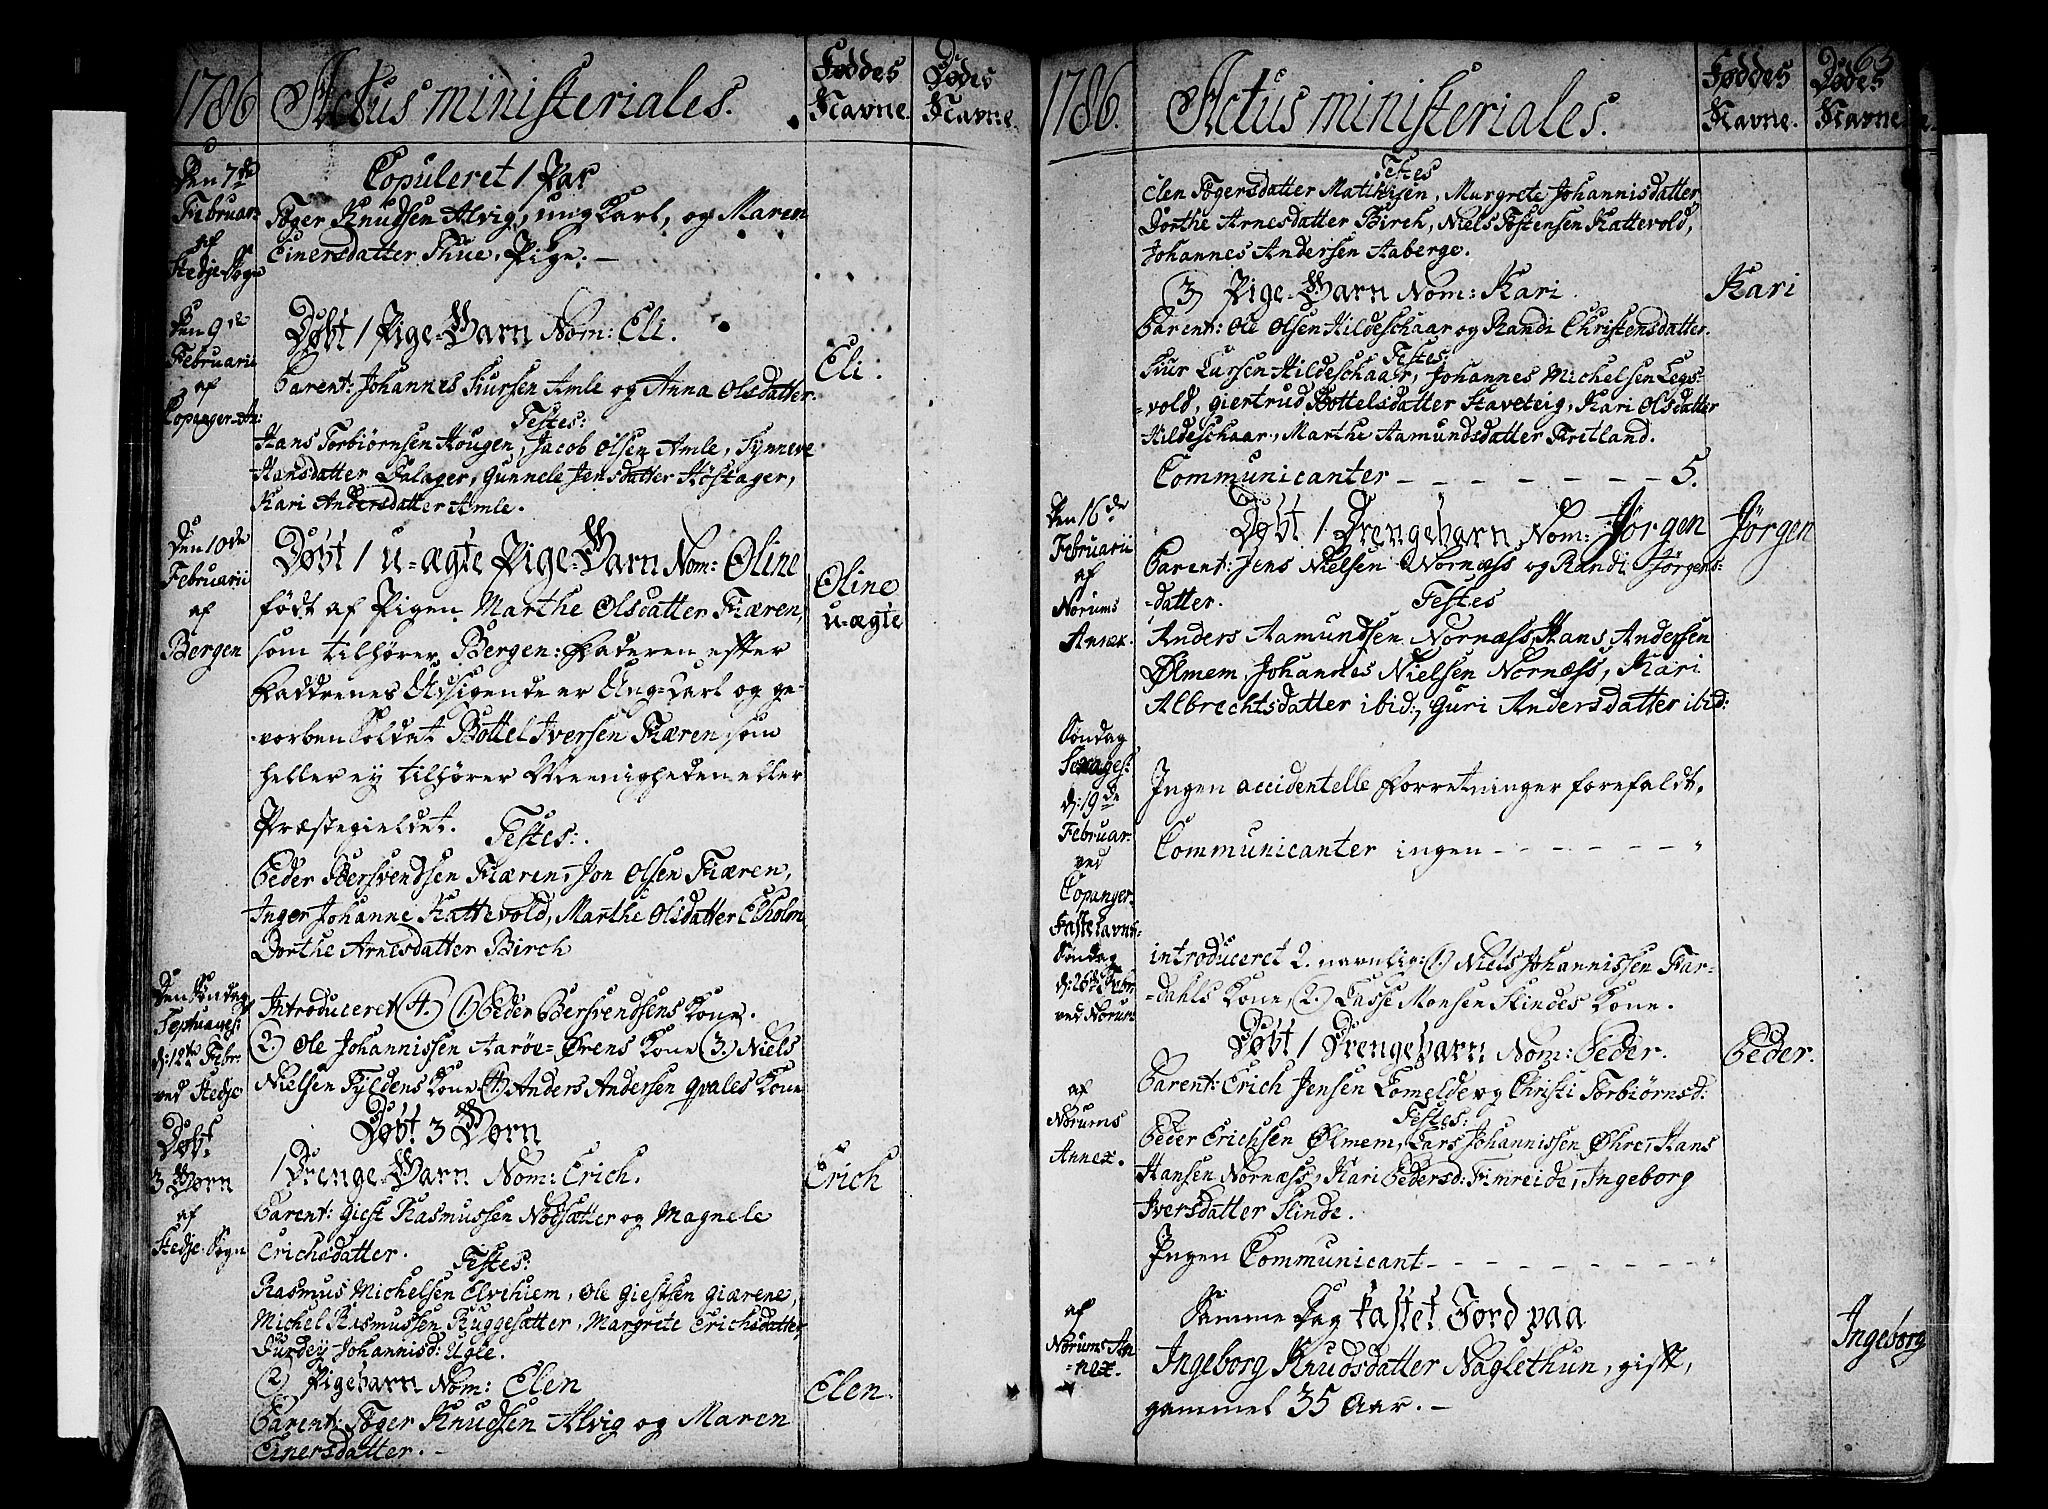 1786
Actus ministeriales.
Føddes
Navne.
Dødes
Navne.
Den 7de
Februar:
af
Stedje Sogn
Copuleret 1 Par
Tøger Knudsen Alvig, ung Karl, og Maren
Einersdatter Thue, Pige. —
Den 9de
Februarii
af
Copanger-An:
Døbt 1 Pige-Barn Nom: Eli.
Eli.
Parent: Johannes Siursen Amle og Anna Olsdatter.
Testes:
Hans Torbiørnsen Hougen, Jacob Olsen Amle, Synneve
Hansdatter Dalager, Gunnele Jensdatter Høstager,
Kari Andersdatter Amle.
Den 10de
Februarii
af
Bergen
Døbt 1 u-ægte Pige-Barn Nom: Oline
Oline
u-ægte
født af Pigen Marthe Olsdatter Kiæren,
som tilhører Bergen: Faderen efter
Faddrenes Udsigende er Ung-Carl og ge-
vorben Soldat Bottel Iversen Kiæren som
heller ey tilhører Meenigheden eller
Præstegieldet.
Testes:
Peder Bersvendsen Kiæren, Jon Olsen Kiæren,
Inger Johanne Kattevold, Marthe Olsdatter Elholm
Dorthe Arnesdatter Birch
Den Søndag
Septuages:
d: 12te Febr:
ved Stedje
Introduceret (4. (1.) Peder Bersvendsens Kone.
(2.) Ole Johannissen Aarøe-Ørens Kone (3.) Niels
Nielsen Fyldens Kone (4.) Anders Andersen Qvales Kone
Døbt
3 Børn
af
Stedje-Sogn
Døbt 3 Børn
1 Drenge-Barn Nom: Erich.
Erich
Parent: Giest Rasmussen Nodsætter og Magnele
Erichsdatter.
Testes:
Rasmus Michelsen Elvihiem, Ole Giestsen Giærene,
Michel Rasmussen Ruggesætter, Margrete Erichsdatter
Furdey Johannisd: Ugle.
(2) Pigebarn Nom: Elen
Elen.
Parent: Tøger Knudsen Alvig og Maren
Einersdatter. —
1786.
Actus ministeriales.
Føddes
Navne.
63
Dødes
Navne
Testes
Elen Tøgersdatter Matthisen, Murgrete Johannisdatter
Dorthe Arnesdatter Birch, Niels Tostensen Kattevold,
Johannes Andersen Aaberge.
3) Pige-Barn Nom: Kari.
Kari
Parent: Ole Olsen Hildeschaar og Randi Christensdatter.
Testes:
Siur Larsen Hildeschaar, Johannes Michelsen Legs-
vold, Giertrud Bottelsdatter Haveteig, Kari Olsdatter
Hildeschaar, Marthe Aamundsdatter Fretland.
Communicanter — — — — — — — 5.
Den 16de
Februarii
af
Norums
Annex.
Døbt 1 Drengebarn, Nom: Jørgen
Jørgen
Parent: Jens Nielsen Nornæss og Randi Jørgens-
datter.
Testes
Anders Aamundsen Nornæss, Hans Andersen
Ølmem, Johannes Nielsen Nornæss, Kari
Albrechtsdatter ibid:, Guri Andersdatter ibid:
Søndag
Sexages:
d: 19de
Februar:
ved
Copanger.
Ingen accidentelle Forretninger forefaldt.
Communicanter ingen — — — — — — — "
Fastelavns-
Søndag
d: 26de Febr:
ved Norum
introduceret 2. navnlig: (1.) Niels Johannissen Far-
dahls Kone, (2.) Lasse Monsen Slindes Kone.
Døbt 1 Drengebarn Nom: Peder.
Peder.
af
Norums
Annex.
Parent: Erich Jensen Lomelde og Christi Torbiørnsd:
Testes:
Peder Erichsen Ølmem, Lars Johannissen Øhre, Hans
Hansen Nornæss, Kari Pedersd: Fimreide, Ingeborg
Iversdatter Slinde.
Ingen Communicant — — — — — — — — "
af
Norums An-
nex.
Samme Dag kastet Jord paa
Ingeborg Knudsdatter Naglethun, gift,
gammel 35 Aar. —
Ingeborg